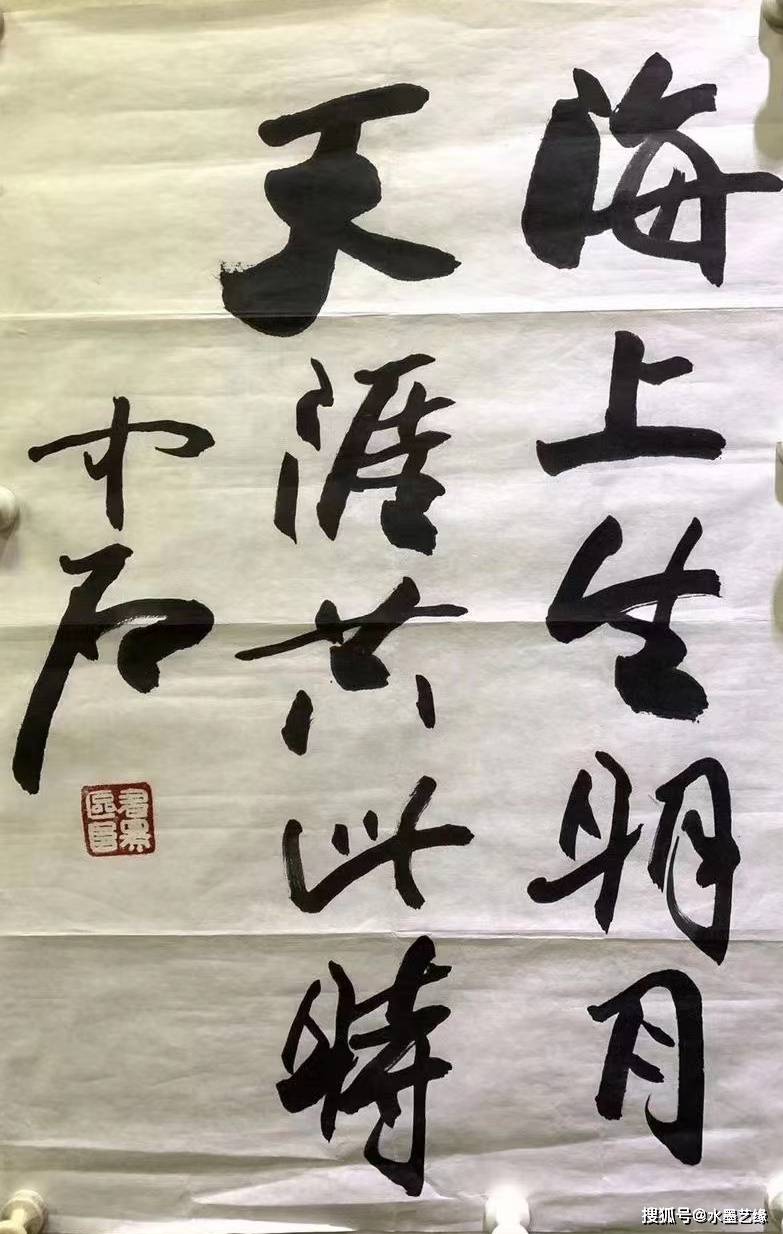 海上生明月
天涯共此時
中石
搜狐号@水墨艺缘